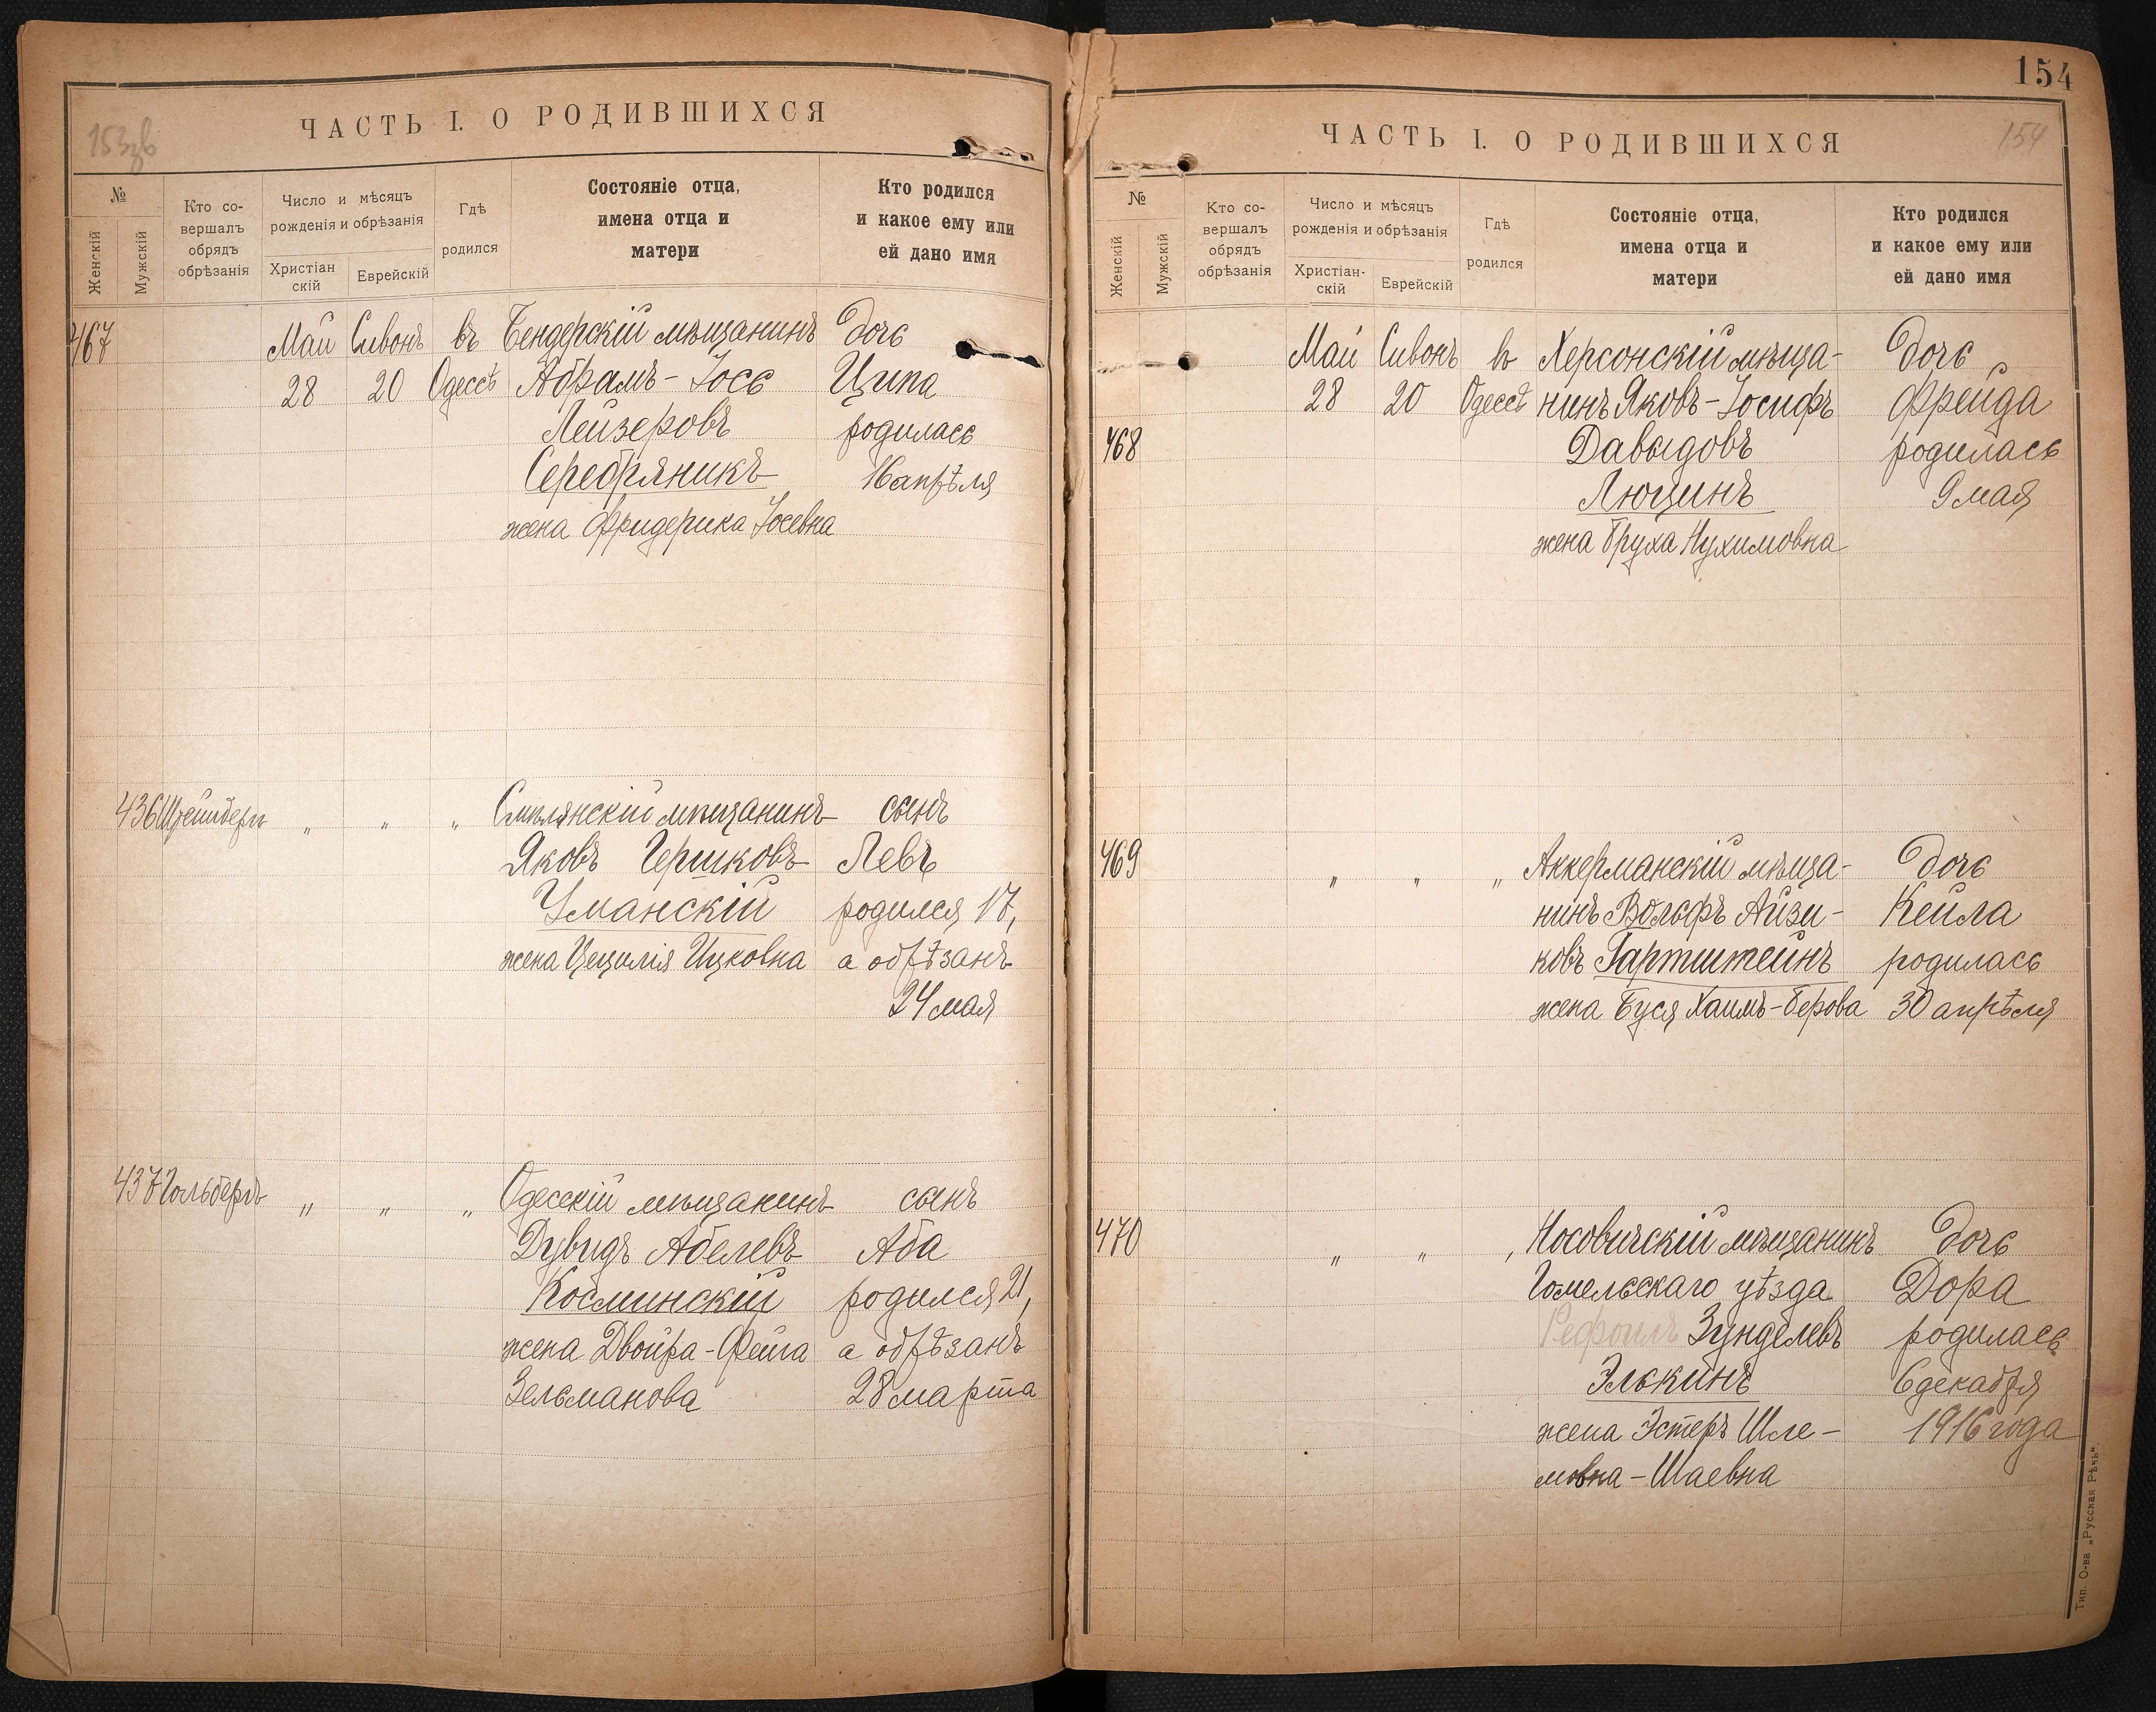 153зв
ЧАСТЬ I. О РОДИВШИХСЯ
№
Женскій
Мужскій
Кто со-
вершалъ
обрядъ
обрѣзанія
Число и мѣсяцъ
рожденія и обрѣзанія
Христіан
скій
Еврейскій
Гдѣ
родился
Состояніе отца,
имена отца и
матери
Кто родился
и какое ему или
ей дано имя
467 Май Сивонъ въ Бендерскій мѣщанинъ дочь
28 20 Одессѣ Абрамъ-Іось Ципа
Лейзеровъ родилась
Серебряникъ 16 апрѣля
жена Фридерика Іосевна
436 „ „ „ Смѣлянскій мѣщанинъ сынъ
Яковъ Гершковъ Левъ
Уманскій родился 17,
жена Цецилія Ицковна а обрѣзанъ
24 мая
437 Гольберъ „ „ „ Одесскій мѣщанинъ сынъ
Дувидъ Абелевъ Аба
Косминскій родился 21,
жена Двойра-Фейга а обрѣзанъ
Зельманова 28 марта
154
ЧАСТЬ I. О РОДИВШИХСЯ
154
№
Женскій
Мужскій
Кто со-
вершалъ
обрядъ
обрѣзанія
Число и мѣсяцъ
рожденія и обрѣзанія
Христіан-
скій
Еврейскій
Гдѣ
родился
Состояніе отца,
имена отца и
матери
Кто родился
и какое ему или
ей дано имя
Май Сивонъ въ Херсонскій мѣща- дочь
28 20 Одессѣ нинъ Яковъ-Іосифъ Фрейда
468 Давыдовъ родилась
Люцинъ 9 мая
жена Бруха Нухимовна
469 „ „ „ Аккерманскій мѣща- дочь
нинъ Вольфъ Айзи- Кейла
ковъ Гартштейнъ родилась
жена Буся Хаимъ-Берова 30 апрѣля
470 „ „ „ Носовичскій мѣщанинъ дочь
Гомельскаго уѣзда Дора
Рефоилъ Зунделевъ родилась
Элькинъ 6 декабря
жена Эстеръ Шле- 1916 года
мовна-Шаевна
Тип. О-ва „Русская Рѣчь“.